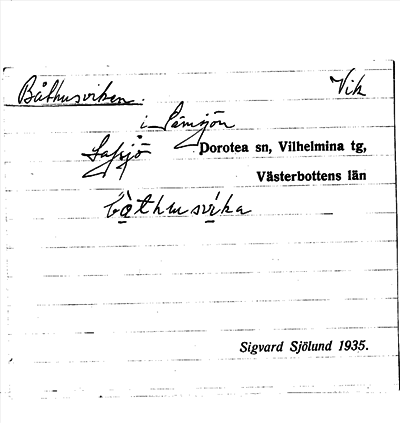 Båthusviken. Vik
i
Dorotea sn, Vilhelmina tg,
Västerbottens län
båthusvika
Sigvard Sjölund 1935.